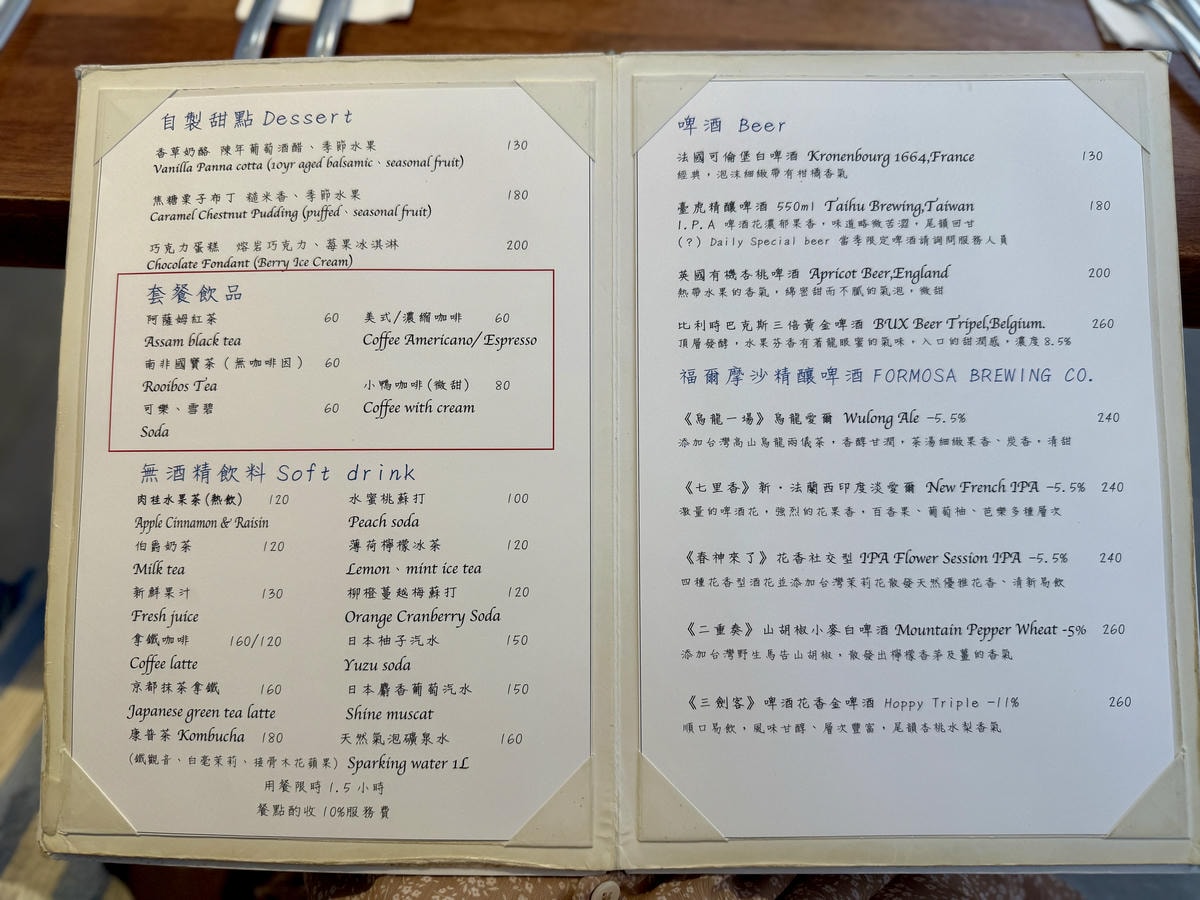 自製甜點 Dessert
香草奶酪 陳年葡萄酒醋、季節水果 130
Vanilla Panna cotta (10yr aged balsamic、seasonal fruit)
焦糖栗子布丁 糙米香、季節水果 180
Caramel Chestnut Pudding (puffed、seasonal fruit)
巧克力蛋糕 熔岩巧克力、莓果冰淇淋 200
Chocolate Fondant (Berry Ice Cream)
套餐飲品
阿薩姆紅茶 60 美式/濃縮咖啡 60
Assam black tea Coffee Americano/Espresso
南非國寶茶(無咖啡因) 60
Rooibos Tea 小鴨咖啡(微甜) 80
可樂、雪碧 60 Coffee with cream
Soda
無酒精飲料 Soft drink
肉桂水果茶(熱飲) 120 水蜜桃蘇打 100
Apple Cinnamon & Raisin Peach soda
伯爵奶茶 120 薄荷檸檬冰茶 120
Milk tea Lemon、mint ice tea
新鮮果汁 130 柳橙蔓越梅蘇打 120
Fresh juice Orange Cranberry Soda
拿鐵咖啡 160/120 日本柚子汽水 150
Coffee latte Yuzu soda
京都抹茶拿鐵 160 日本麝香葡萄汽水 150
Japanese green tea latte Shine muscat
康普茶 Kombucha 180 天然氣泡礦泉水 160
(鐵觀音、白毫茉莉、接骨木花蘋果) Sparking water 1L
用餐限時 1.5 小時
餐點酌收 10%服務費
啤酒 Beer
法國可倫堡白啤酒 Kronenbourg 1664,France 130
經典，泡沫細緻帶有柑橘香氣
臺虎精釀啤酒 550ml Taihu Brewing,Taiwan 180
I.P.A 啤酒花濃郁果香，味道略微苦澀，尾韻回甘
(?) Daily Special beer 當季限定啤酒請詢問服務人員
英國有機杏桃啤酒 Apricot Beer,England 200
熱帶水果的香氣，綿密甜而不膩的氣泡，微甜
比利時巴克斯三倍黃金啤酒 BUX Beer Tripel,Belgium. 260
頂層發酵，水果芬香有著龍眼蜜的氣味，入口的甜潤感，濃度8.5%
福爾摩沙精釀啤酒 FORMOSA BREWING CO.
《烏龍一場》烏龍愛爾 Wulong Ale -5.5% 240
添加台灣高山烏龍兩儀茶，香醇甘潤，茶湯細緻果香、炭香，清甜
《七里香》新・法蘭西印度淡愛爾 New French IPA -5.5% 240
激量的啤酒花，強烈的花果香，百香果、葡萄柚、芭樂多種層次
《春神來了》花香社交型 IPA Flower Session IPA -5.5% 240
四種花香型酒花並添加台灣茉莉花散發天然優雅花香、清新易飲
《二重奏》山胡椒小麥白啤酒 Mountain Pepper Wheat -5% 260
添加台灣野生馬告山胡椒，散發出檸檬香茅及薑的香氣
《三劍客》啤酒花香金啤酒 Hoppy Triple -11% 260
順口易飲，風味甘醇、層次豐富，尾韻杏桃水梨香氣